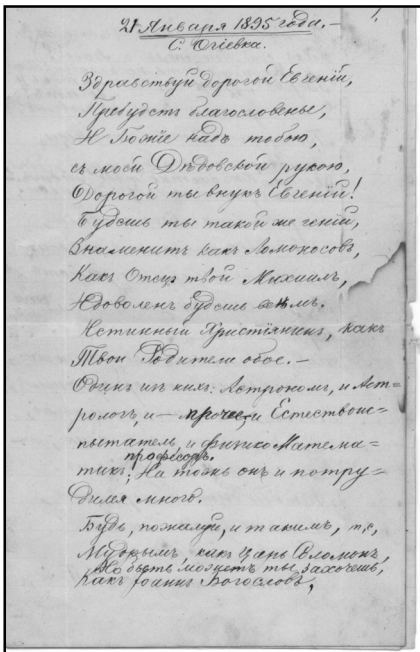 21 Января 1895 года. —
С. Огіевка.
Здравствуй дорогой Евгеній,
Пребудетъ благословенье,
И Божіе надъ тобою,
съ моей Дѣдовской рукою,
Дорогой ты внукъ Евгеній!
Будешь ты такой же геній,
Знаменитъ какъ Ломоносовъ,
Какъ Отецъ твой Михаилъ,
И доволенъ будешь
Истинный Христіянинъ, какъ
Твои Родители обое. —
Одинъ изъ нихъ: Астрономъ, и Аст=
рологъ, и — прочее, и Естествоис=
пытатель и физико Матема=
професоръ.
тикъ; На тожъ онъ и потру=
дился много.
Будь, пожалуй, и такимъ, т,е,
Мудрымъ, какъ Царь Соломонъ,
Но быть можетъ ты захочешь,
Какъ Іоаннъ Богословъ,